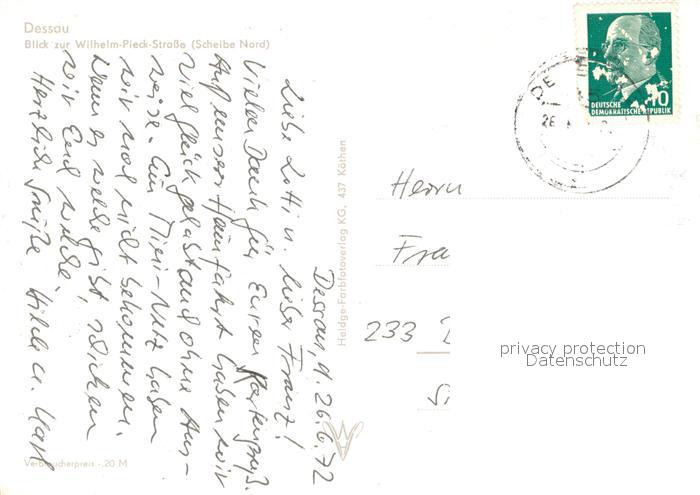 Dessau
Blick zur Wilhelm-Pieck-Straße (Scheibe Nord)
Dessau, d. 26.6.72
Liebe Lotti u. lieber Franz!
Vielen Dank für Euren Kartengruß.
Auf unserer Heimfahrt haben wir
viel Glück gehabt und ohne Aus-
weise. Ein Mini-Netz haben
wir noch nicht bekommen.
Wenn es welche gibt, schicken
wir Euch welche.
Herzliche Grüße Hilde u. Karl
Verbraucherpreis -.20 M
Heldge-Farbfotoverlag KG, 437 Köthen
DEUTSCHE
DEMOKRATISCHE REPUBLIK
10
DE
26
Herrn
Fra
233
privacy protection
Datenschutz